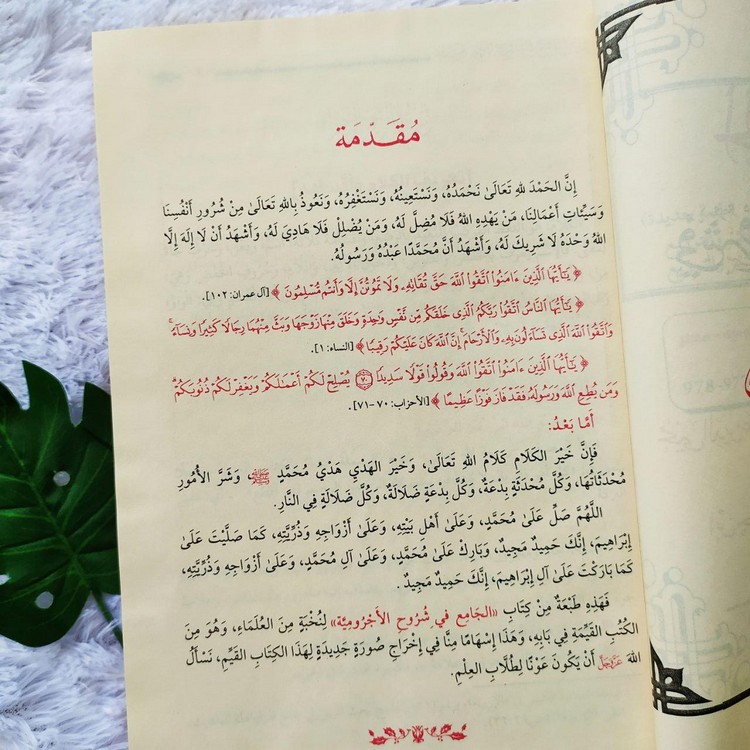 مُقَدِّمَة
إِنَّ الحَمْدَ لِلهِ تَعَالَىٰ نَحْمَدُهُ، وَنَسْتَعِينُهُ، وَنَسْتَغْفِرُهُ، وَنَعُوذُ بِاللهِ تَعَالَىٰ مِنْ شُرُورِ أَنْفُسِنَا
وَسَيِّئَاتِ أَعْمَالِنَا، مَنْ يَهْدِهِ اللهُ فَلَا مُضِلَّ لَهُ، وَمَنْ يُضْلِلْ فَلَا هَادِيَ لَهُ، وَأَشْهَدُ أَنْ لَا إِلَهَ إِلَّا
اللهُ وَحْدَهُ لَا شَرِيكَ لَهُ، وَأَشْهَدُ أَنَّ مُحَمَّدًا عَبْدُهُ وَرَسُولُهُ.
﴿ يَٰٓأَيُّهَا ٱلَّذِينَ ءَامَنُوا۟ ٱتَّقُوا۟ ٱللَّهَ حَقَّ تُقَاتِهِۦ وَلَا تَمُوتُنَّ إِلَّا وَأَنتُم مُّسْلِمُونَ ﴾ [آل عمران: ١٠٢].
﴿ يَٰٓأَيُّهَا ٱلنَّاسُ ٱتَّقُوا۟ رَبَّكُمُ ٱلَّذِى خَلَقَكُم مِّن نَّفْسٍ وَٰحِدَةٍ وَخَلَقَ مِنْهَا زَوْجَهَا وَبَثَّ مِنْهُمَا رِجَالًا كَثِيرًا وَنِسَآءً ۚ
وَٱتَّقُوا۟ ٱللَّهَ ٱلَّذِى تَسَآءَلُونَ بِهِۦ وَٱلْأَرْحَامَ ۚ إِنَّ ٱللَّهَ كَانَ عَلَيْكُمْ رَقِيبًا ﴾ [النساء: ١].
﴿ يَٰٓأَيُّهَا ٱلَّذِينَ ءَامَنُوا۟ ٱتَّقُوا۟ ٱللَّهَ وَقُولُوا۟ قَوْلًا سَدِيدًا ۝٧٠ يُصْلِحْ لَكُمْ أَعْمَٰلَكُمْ وَيَغْفِرْ لَكُمْ ذُنُوبَكُمْ ۗ
وَمَن يُطِعِ ٱللَّهَ وَرَسُولَهُۥ فَقَدْ فَازَ فَوْزًا عَظِيمًا ﴾ [الأحزاب: ٧٠-٧١].
أَمَّا بَعْدُ:
فَإِنَّ خَيْرَ الكَلَامِ كَلَامُ اللهِ تَعَالَىٰ، وَخَيْرَ الهَدْيِ هَدْيُ مُحَمَّدٍ ﷺ، وَشَرَّ الأُمُورِ
مُحْدَثَاتُهَا، وَكُلَّ مُحْدَثَةٍ بِدْعَةٌ، وَكُلَّ بِدْعَةٍ ضَلَالَةٌ، وَكُلَّ ضَلَالَةٍ فِي النَّارِ.
اللَّهُمَّ صَلِّ عَلَىٰ مُحَمَّدٍ، وَعَلَىٰ أَهْلِ بَيْتِهِ، وَعَلَىٰ أَزْوَاجِهِ وَذُرِّيَّتِهِ، كَمَا صَلَّيْتَ عَلَىٰ
إِبْرَاهِيمَ، إِنَّكَ حَمِيدٌ مَجِيدٌ، وَبَارِكْ عَلَىٰ مُحَمَّدٍ، وَعَلَىٰ آلِ مُحَمَّدٍ، وَعَلَىٰ أَزْوَاجِهِ وَذُرِّيَّتِهِ،
كَمَا بَارَكْتَ عَلَىٰ آلِ إِبْرَاهِيمَ، إِنَّكَ حَمِيدٌ مَجِيدٌ.
فَهَذِهِ طَبْعَةٌ مِنْ كِتَابِ «الجَامِعِ فِي شُرُوحِ الآجُرُومِيَّةِ» لِنُخْبَةٍ مِنَ العُلَمَاءِ، وَهُوَ مِنَ
الكُتُبِ القَيِّمَةِ فِي بَابِهِ، وَهَذَا إِسْهَامًا مِنَّا فِي إِخْرَاجِ صُورَةٍ جَدِيدَةٍ لِهَذَا الكِتَابِ القَيِّمِ، نَسْأَلُ
اللهَ عَزَّ وَجَلَّ أَنْ يَكُونَ عَوْنًا لِطُلَّابِ العِلْمِ.